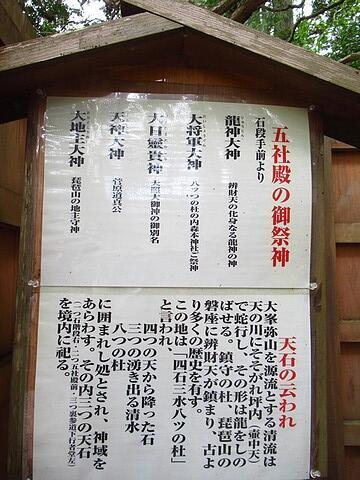 五社殿の御祭神
石段手前より
龍神大神
辨財天の化身なる龍神の神
大将軍大神
八ッつの杜の内森本神社ご祭神
大日霊貴神
天照大御神の御別名
天神大神
菅原道真公
大地主大神
琵琶山の地主守神
天石の云われ
大峯弥山を源流とする清流は
天の川にそそがれ坪内（壷中天）
で蛇行し、その形は龍をしの
ばせる。鎮守の杜、琵琶山の
磐座に辨財天が鎮まり、古よ
り多くの歴史を有す。
この地は「四石三水八ツの杜」
と言われ、
四つの天から降った石
三つの湧き出る清水
八つの杜
に囲まれし処とされ、神域を
あらわす。その内三つの天石
（一つ石階段右・二つ五社殿前・三つ裏参道上行者堂左）
を境内に祀る。